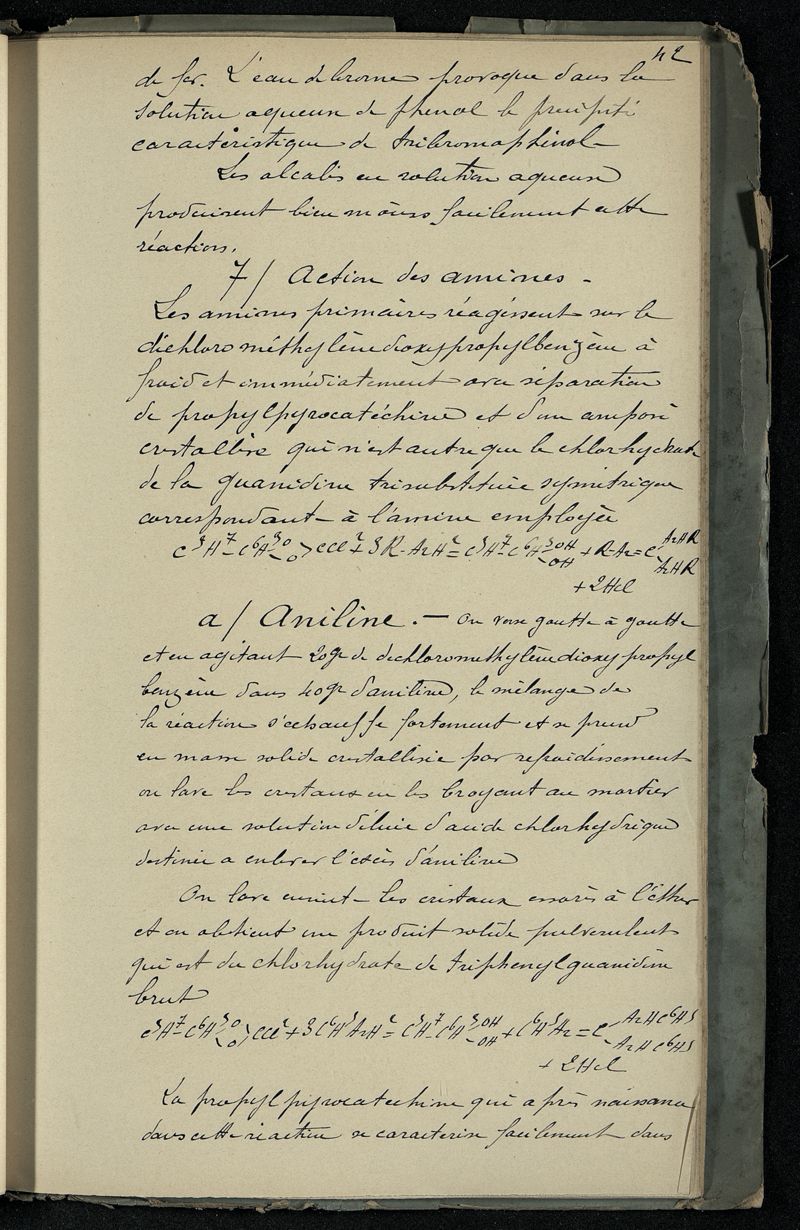 42
de fer. L'eau de brome provoque dans la
solution aqueuse de phenol le precipité
caractéristique de tribromophénol-
Les alcalis en solution aqueuse
produisent bien moins facilement cette
réaction.
7/ Action des amines -
Les amines primaires réagissent sur le
dichlorométhylènedioxypropylbenzène à
froid et immédiatement avec séparation
de propylpyrocatéchine et d'un composé
cristallisé qui n'est autre que le chlorhydrate
de la guanidine trisubstituée symétrique
correspondant à l'amine employée
C3H7-C6H3O-O>CCl2+3R-AzH2=C3H7-C6H3OH-OH+R-Az=C-AzHR
AzHR
+2HCl
a/ Aniline. — On verse goutte à goutte
et en agitant 20gr de dichloromethylènedioxypropyl
benzène dans 40gr d'aniline, le mélange de
la réaction s'echauffe fortement et se prend
en masse solide cristallisée par refroidissement
on lave les cristaux en les broyant au mortier
avec une solution diluée d'acide chlorhydrique
destinée a enlever l'excès d'aniline
On lave ensuite les cristaux essorés à l'éther
et on obtient un produit solide pulverulent
qui est du chlorhydrate de triphenylguanidine
brut
C3H7-C6H3O-O>CCl2+3C6H5AzH2=C3H7-C6H3OH-OH+C6H5Az=C-AzHC6H5
AzHC6H5
+2HCl
La propylpyrocatechine qui a pris naissance
dans cette réaction se caracterise facilement dans